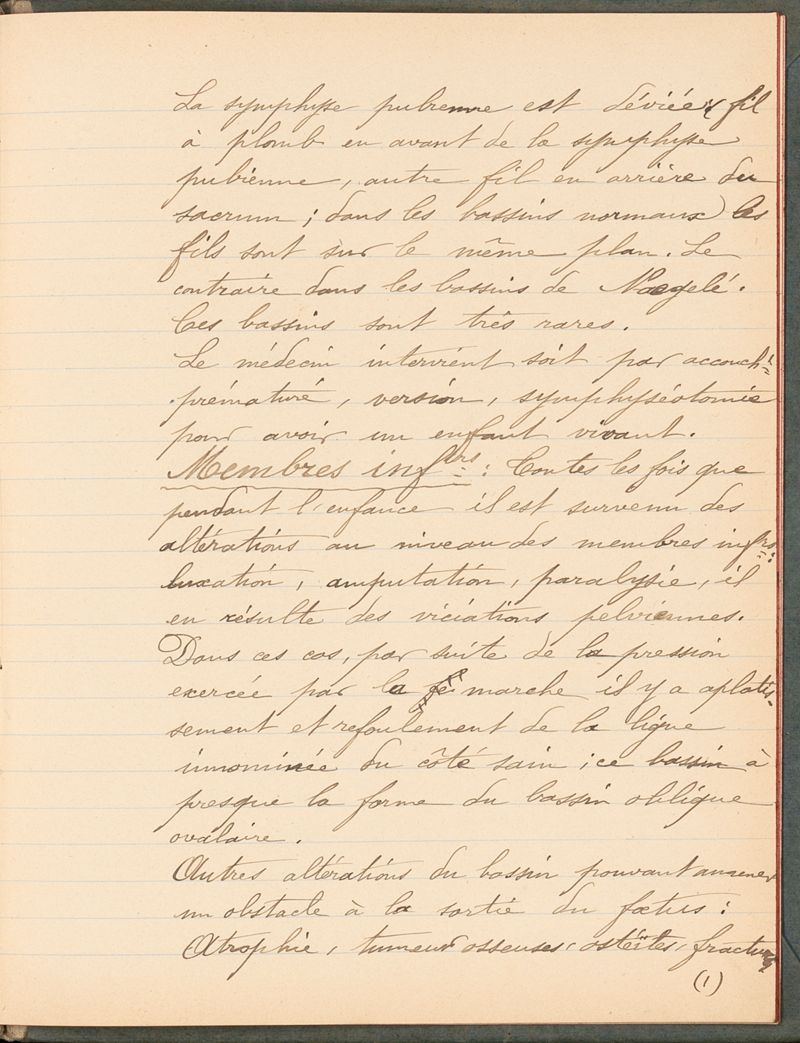 La symphyse pubienne est déviée ; fil
à plomb en avant de la symphyse
pubienne, autre fil en arrière du
sacrum ; dans les bassins normaux) les
fils sont sur le même plan. Le
contraire dans les bassins de Naegelé.
Ces bassins sont très rares.
Le médecin intervient soit par accouch.t
prématuré, version, symphyséotomie
pour avoir un enfant vivant.
Membres inf.urs : Toutes les fois que
pendant l'enfance il est survenu des
altérations au niveau des membres inf.rs :
luxation, amputation, paralysie, il
en résulte des viciations pelviennes.
Dans ces cas, par suite de la pression
exercée par la marche il y a aplatis-
sement et refoulement de la ligne
innominée du côté sain ; ce bassin a
presque la forme du bassin oblique
ovalaire.
Autres altérations du bassin pouvant amener
un obstacle à la sortie du fœtus :
Atrophie, tumeurs osseuses, ostéites, fractures
(1)